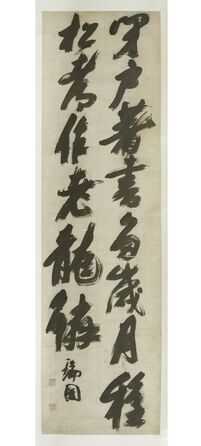 閉户著書多歲月種
松皆作老龍鱗
瑞圖